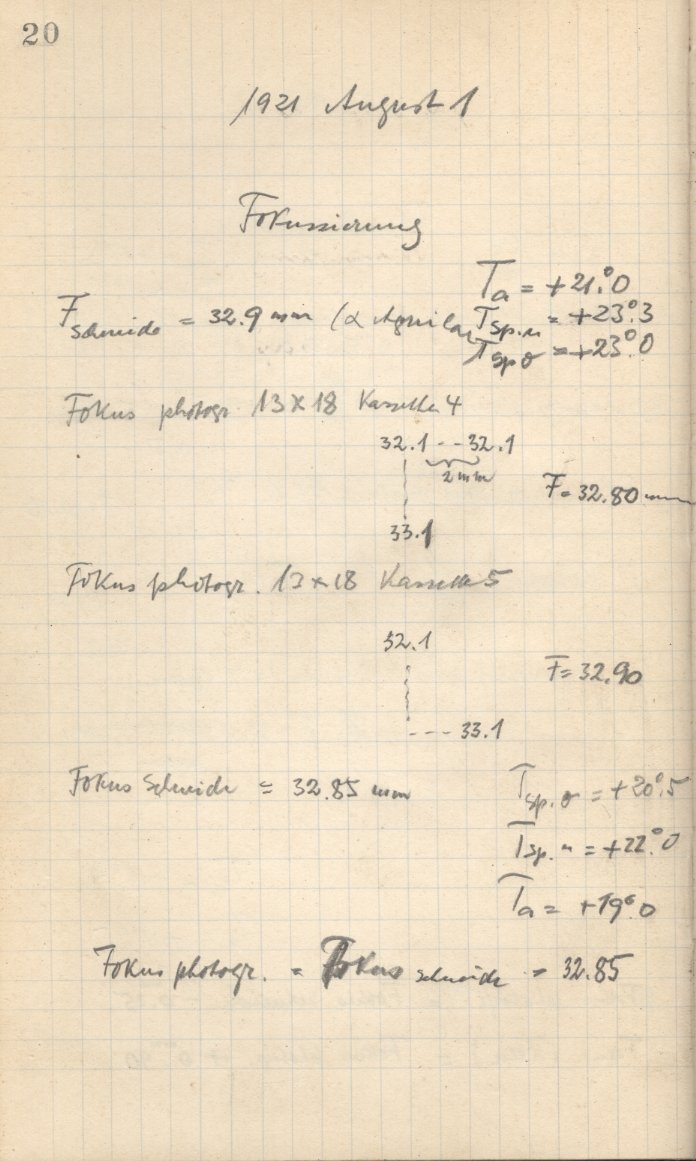 20
1921 August 1
Fokussierung
T_a = +21°.0
F_Schneide = 32.9 mm (α Aquilae) T_sp.u = +23°.3
T_sp o = +23°.0
Fokus photogr. 13×18 Kassette 4
32.1 -- 32.1
2 mm
F = 32.80 mm
33.1
Fokus photogr. 13×18 Kassette 5
32.1
F = 32.90
--- 33.1
Fokus Schneide = 32.85 mm T_sp.o = +20°.5
T_sp.u = +22°.0
T_a = +19°.0
Fokus photogr. = Fokus Schneide = 32.85